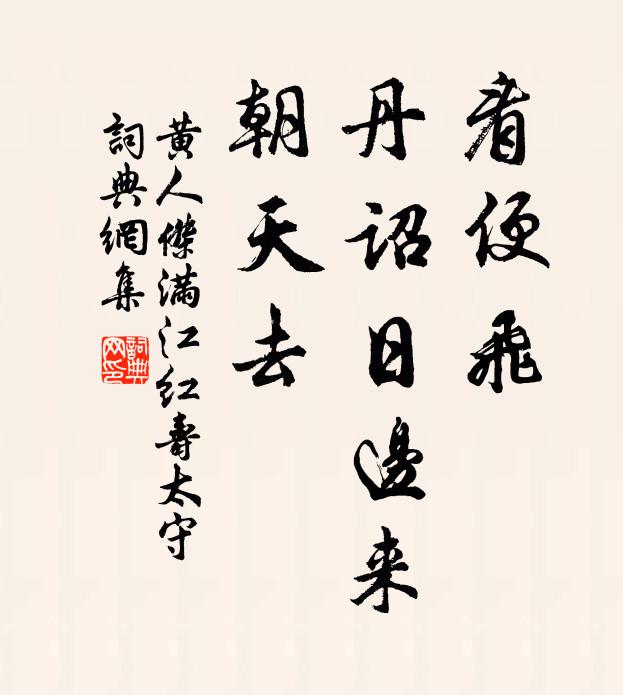 看便飛
丹詔日邊来
朝天去
黄人傑滿江红壽太守
詞典網集
詞典网印